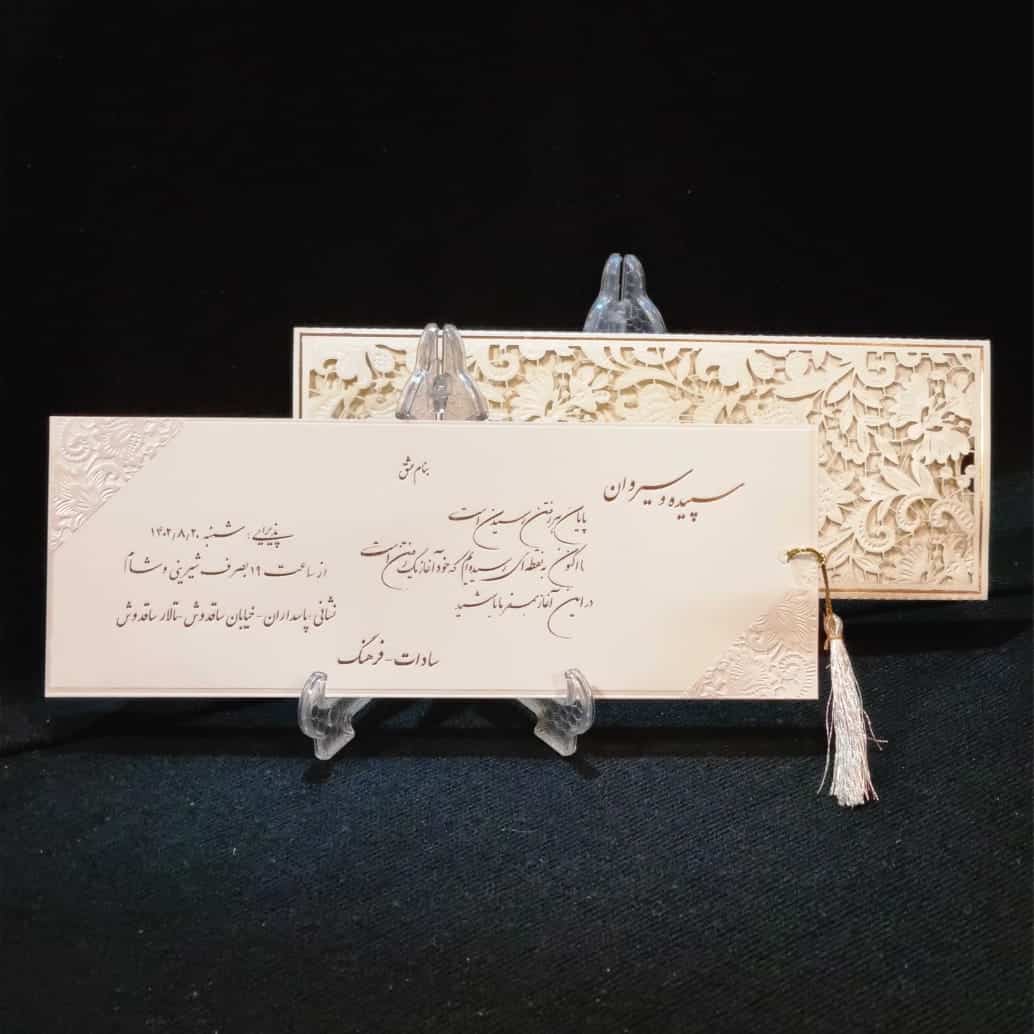 بنام عشق
سپیده و سیروان
پایان هر رفتن رسیدن است
ما اکنون به نقطه‌ای رسیده‌ایم که خود آغاز یک رفتن است
در این آغاز همسفر ما باشید
پذیرایی : شنبه ۱۴۰۲٫۸٫۲۰
از ساعت ۱۹ بصرف شیرینی و شام
نشانی : پاسداران - خیابان ساقدوش - تالار ساقدوش
سادات - فرهنگ